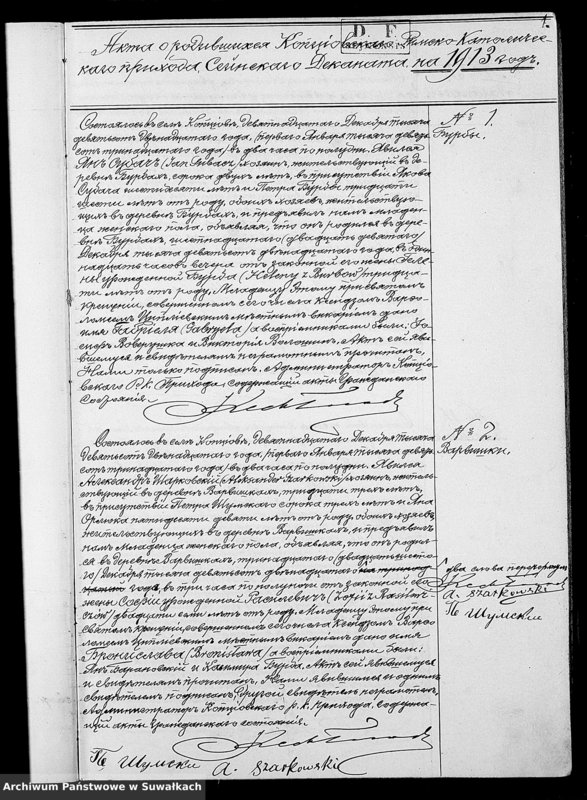 D. F.
1.
Акта о родившихся Копціовскаго Римско-Католичес-
каго прихода, Сейнскаго Деканата, на 1913 годъ.
№ 1.
Бурбы.
Состоялось въ селѣ Копціовѣ, девятнадцатаго Декабря тысяча
девятьсотъ двѣнадцатаго года, /перваго Января тысяча девять-
сотъ тринадцатаго года/ въ два часа по полудни. Явился
Янъ Субачъ /Jan Subacz/, хозяинъ, жительствующій въ де-
ревнѣ Бурбахъ, сорока двухъ лѣтъ, въ присутствіи Якова
Субача шестидесяти лѣтъ и Петра Бурбы тридцати
шести лѣтъ отъ роду, обоихъ хозяевъ, жительствую-
щихъ въ деревнѣ Бурбахъ, и предъявилъ намъ младен-
ца женскаго пола, объявляя, что онъ родился въ дерев-
нѣ Бурбахъ, шестнадцатаго /двадцать девятаго/
Декабря тысяча девятьсотъ двѣнадцатаго года, въ
надцать часовъ вечера отъ законной его жены Еле-
ны урожденной Бурба /Heleny z Burbów/ тридца-
ти лѣтъ отъ роду. Младенцу этому при святомъ
крещеніи, совершенномъ сего числа Ксендзомъ Варѳо-
ломеемъ мѣстнымъ викаріемъ, дано
имя Габріеля /Gabryela/, а воспріемниками были:
и Викторія Волошинъ. Актъ сей явив-
шемуся и свидѣтелямъ неграмотнымъ прочитанъ,
Нами только подписанъ. Администраторъ Копціо-
вскаго Р. К. Прихода, содержащій акты гражданскаго
состоянія.
№ 2.
Варвишки.
Состоялось въ селѣ Копціовѣ, девятнадцатаго Декабря тысяча
девятьсотъ двѣнадцатаго года, /перваго Января тысяча девять-
сотъ тринадцатаго года/ въ два часа по полудни. Явился
Александръ Шарковскій /Aleksander Szarkowski/, хозяинъ, житель-
ствующій въ деревнѣ Варвишкахъ, тридцати трехъ лѣтъ,
въ присутствіи Петра Шумскаго сорока трехъ лѣтъ и Яна
пятидесяти девяти лѣтъ отъ роду, обоихъ хозяевъ,
жительствующихъ въ деревнѣ Варвишкахъ, и предъявилъ
намъ младенца женскаго пола, объявляя, что онъ родил-
ся въ деревнѣ Варвишкахъ, тринадцатаго /двадцать шеста-
го/ Декабря тысяча девятьсотъ двѣнадцатаго
года, въ три часа по полуночи отъ законной его
жены Софіи урожденной Расилевичъ /Zofji z Rasilewi-
czów/ двадцати семи лѣтъ отъ роду. Младенцу этому при
святомъ крещеніи, совершенномъ сего числа Ксендзомъ Варѳо-
ломеемъ мѣстнымъ викаріемъ дано имя
Бронислава /Bronisława/, а воспріемниками были:
Янъ Барановскій и Бурба. Актъ сей явившемуся
и свидѣтелямъ прочитанъ, Нами явившимся и однимъ
свидѣтелемъ подписанъ, другой свидѣтель неграмотенъ.
Администраторъ Копціовскаго р. к. прихода, содержа-
щій акты гражданскаго состоянія.
два слова перечеркнуты
A. Szarkowski
Пе Шумски
Пе Шумски A. Szarkowski
Archiwum Państwowe w Suwałkach